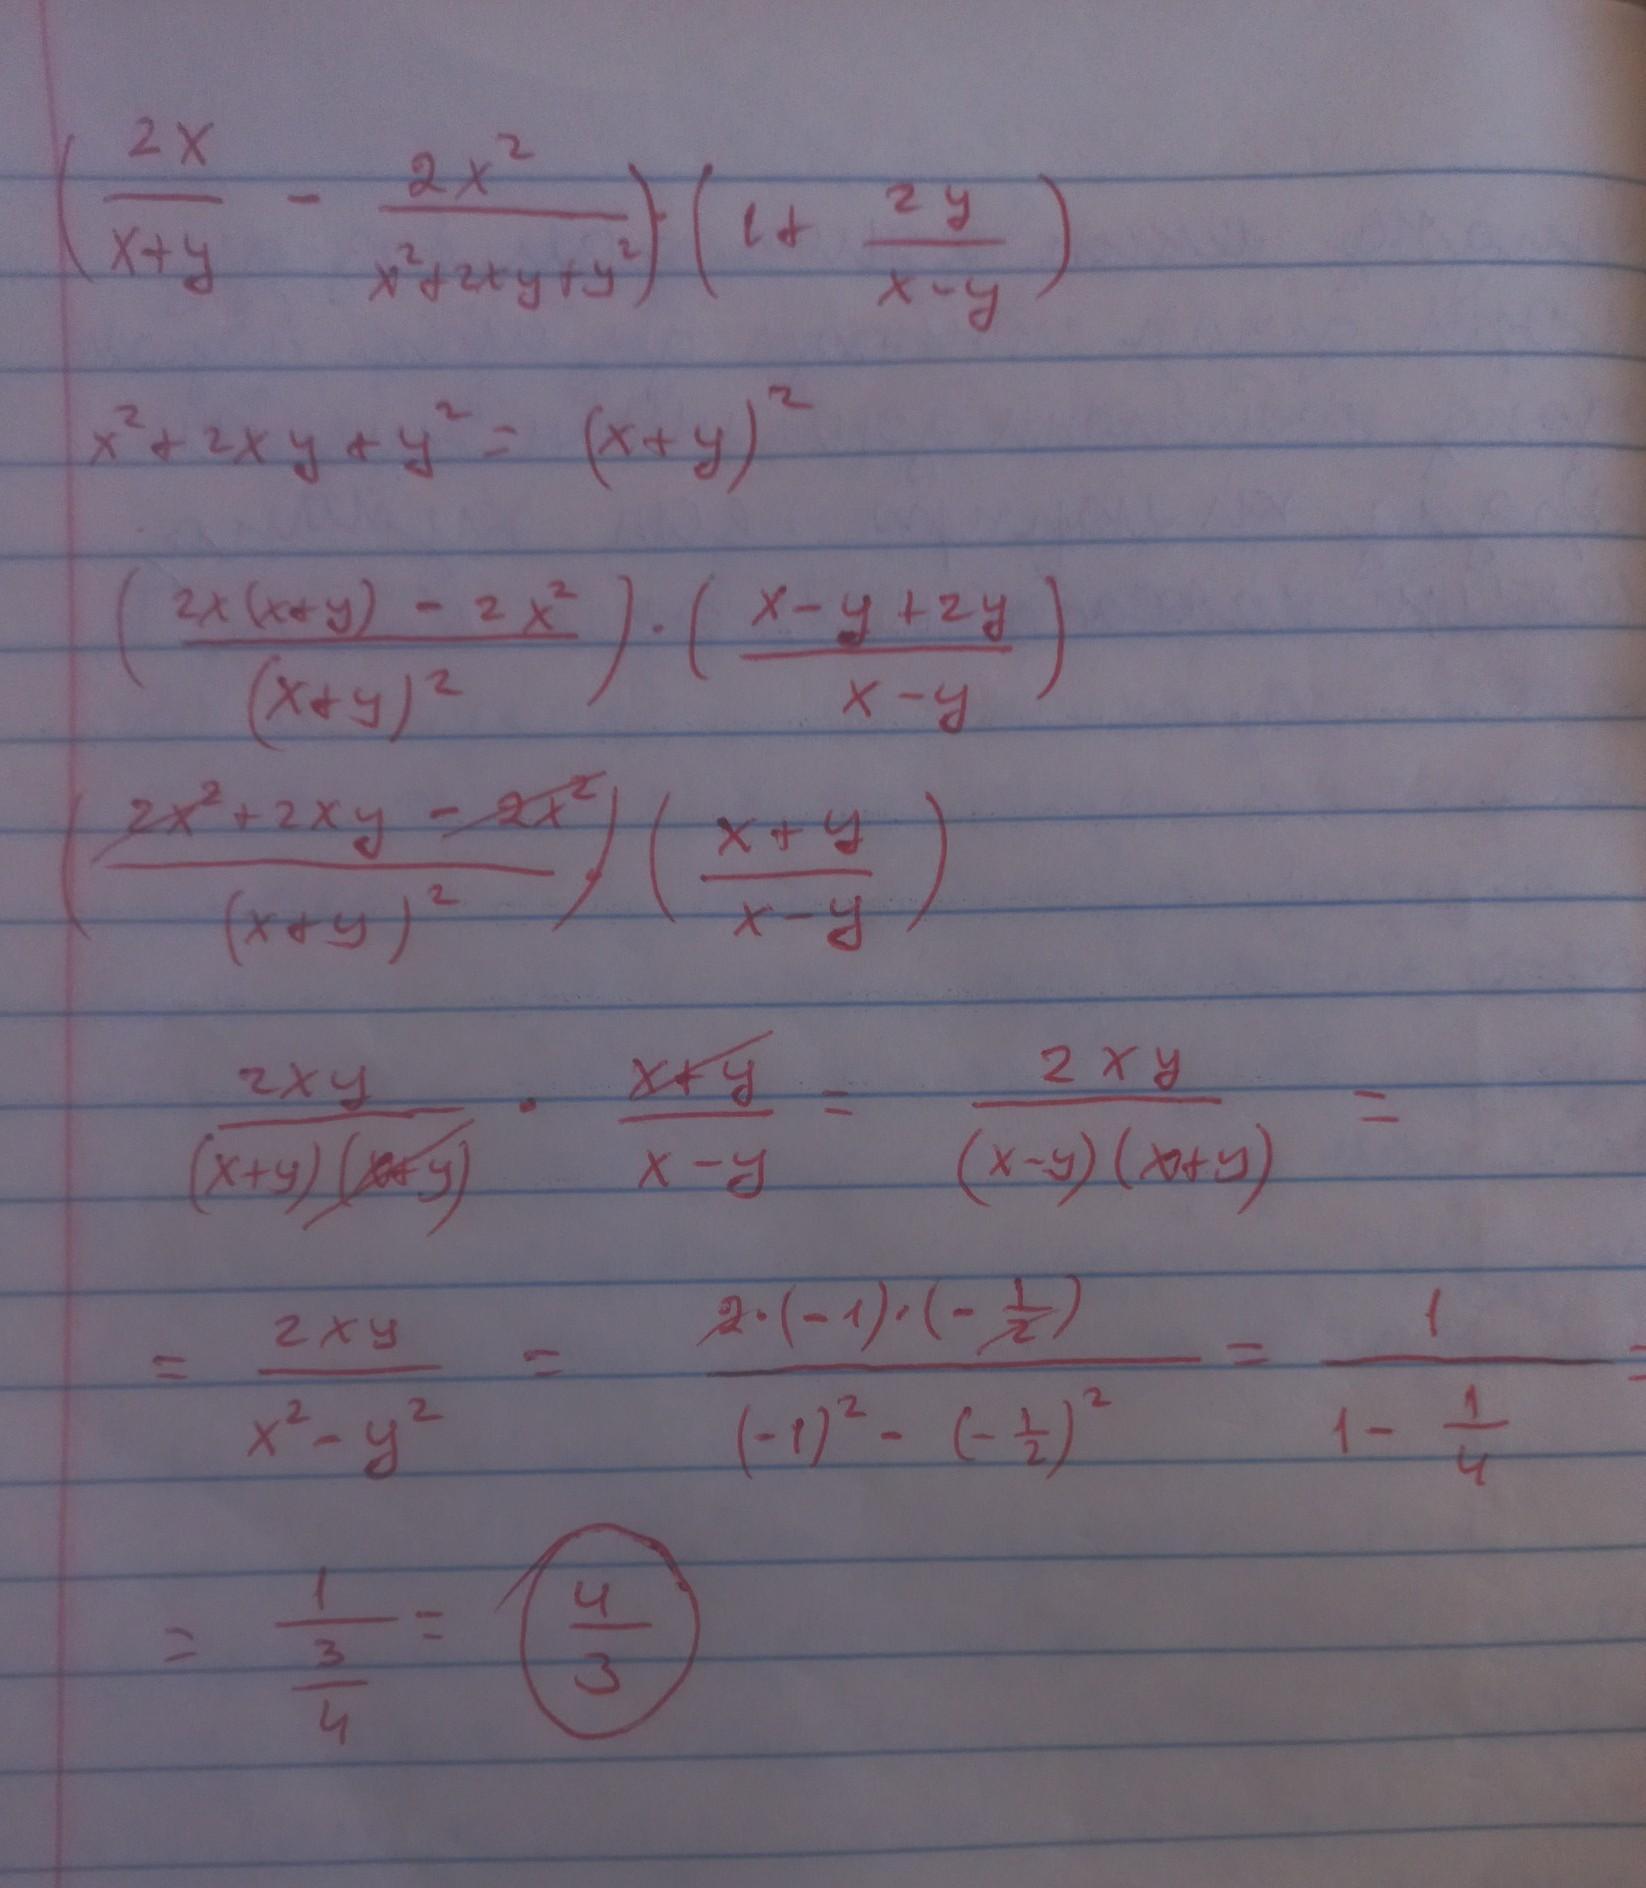 (2x/(x+y) - 2x²/(x²+2xy+y²)) · (1 + 2y/(x-y))
x² + 2xy + y² = (x+y)²
((2x(x+y) - 2x²)/(x+y)²) · ((x-y+2y)/(x-y))
((2x² + 2xy - 2x²)/(x+y)²) · ((x+y)/(x-y))
2xy/((x+y)(x+y)) · (x+y)/(x-y) = 2xy/((x-y)(x+y)) =
= 2xy/(x²-y²) = (2·(-1)·(-1/2))/((-1)² - (-1/2)²) = 1/(1 - 1/4) =
= 1/(3/4) = 4/3